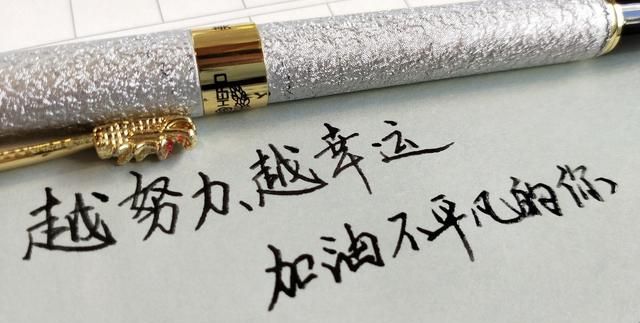 越努力、越幸运
加油不平凡的你
HERO